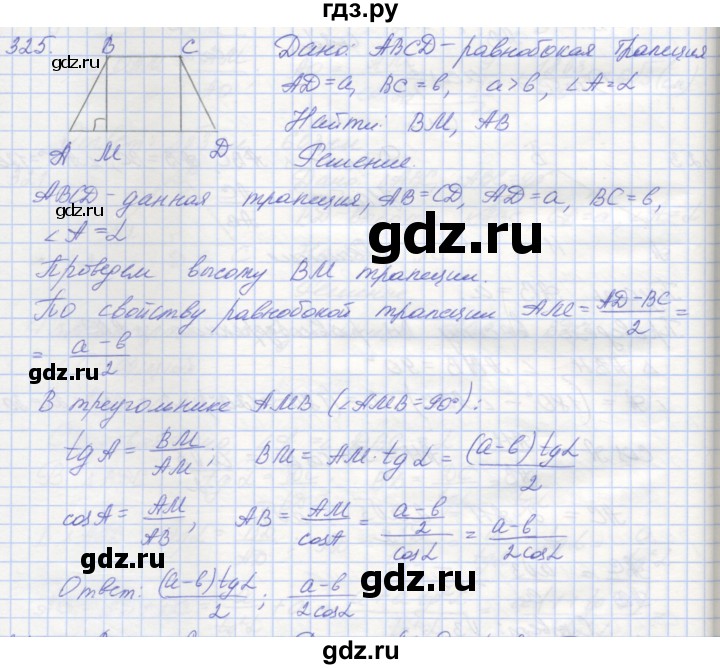 гдз.ру
325. B C Дано: ABCD – равнобокая трапеция
AD = a, BC = b, a > b, ∠A = α
Найти: BM, AB
A M D Решение.
ABCD – данная трапеция, AB = CD, AD = a, BC = b,
∠A = α
Проведем высоту BM трапеции.
По свойству равнобокой трапеции AM = (AD − BC)/2 =
= (a − b)/2
В треугольнике AMB (∠AMB = 90°):
tg A = BM/AM; BM = AM · tg α = (a − b) tg α/2
cos A = AM/AB; AB = AM/cos A = ((a − b)/2)/cos α = (a − b)/(2 cos α)
Ответ: (a − b) tg α/2; (a − b)/(2 cos α)
gdz.ru
gdz.ru
gdz.ru
gdz.ru
gdz.ru
gdz.ru
gdz.ru
gdz.ru
gdz.ru
gdz.ru
гдз.ру